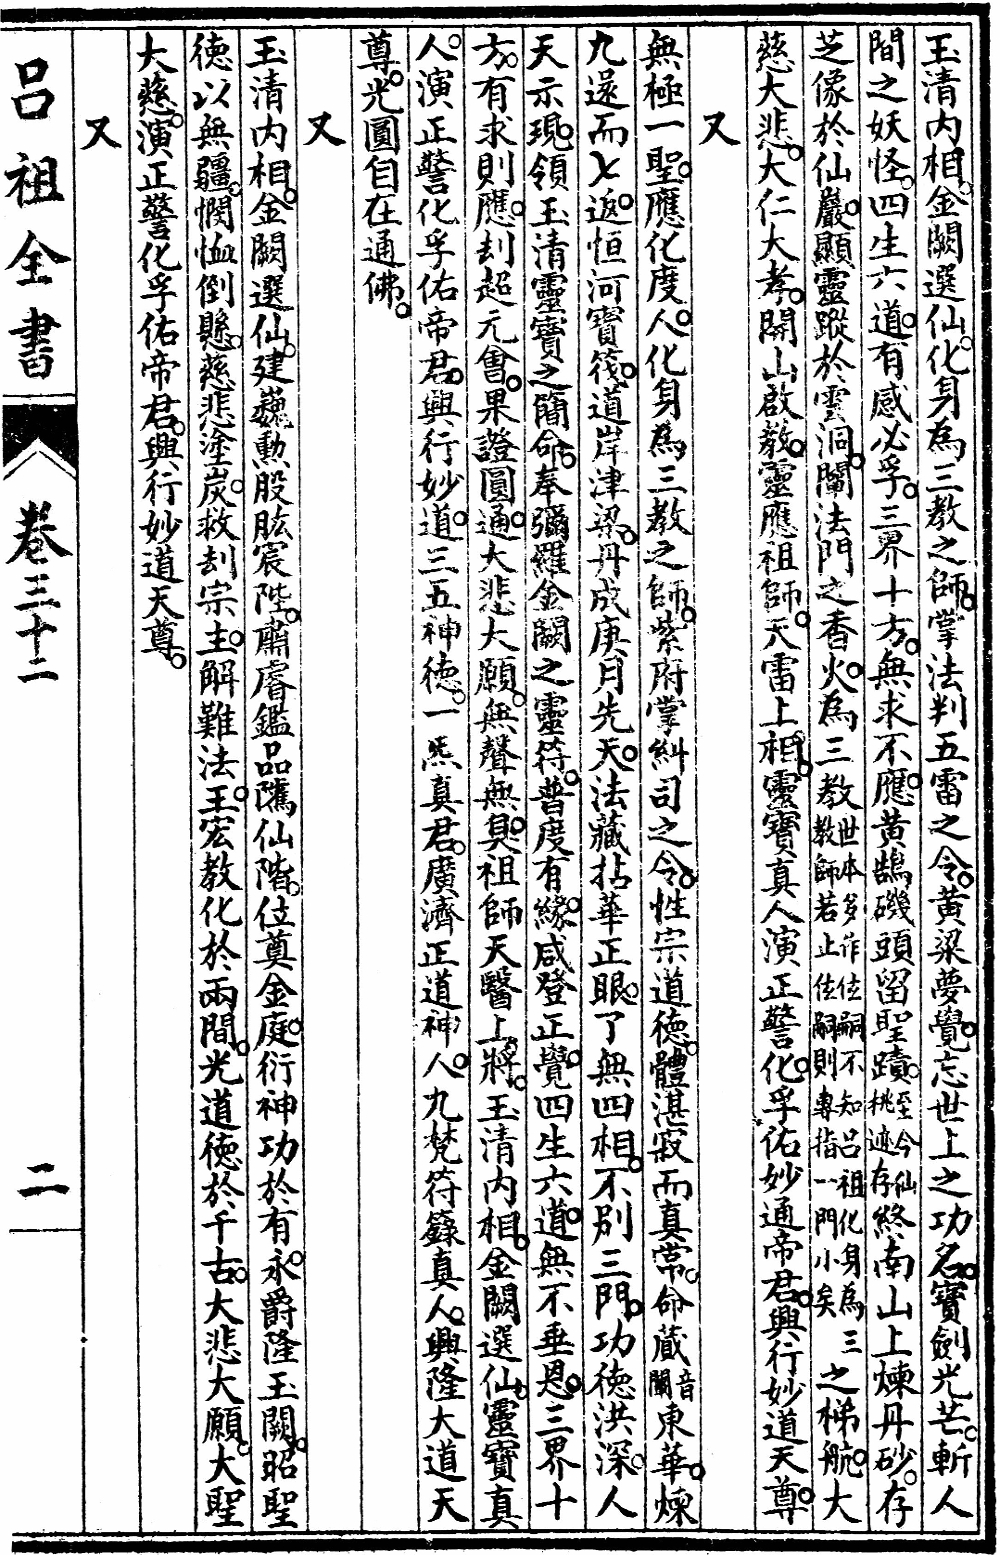 玉清内相。金闕選仙。化身為三教之師。掌法判五雷之令。黃梁夢覺。忘世上之功名。寶劍光芒。斬人
間之妖怪。四生六道。有感必孚。三界十方。無求不應。黃鵠磯頭留聖蹟。至今仙桃迹存終南山上煉丹砂。存
芝像於仙巖。顯靈蹤於雲洞。闡法門之香火。為三教世本多作位嗣不知呂祖化身為三教師若止位嗣則專指一門小矣之梯航。大
慈大悲。大仁大孝。開山啟教。靈應祖師。天雷上相。靈寶真人演正警化。孚佑妙通帝君。興行妙道天尊。
又
無極一聖。應化度人。化身為三教之師。紫府掌糾司之令。性宗道德。體湛寂而真常。命藏音闡東華。煉
九還而七返。恒河寶筏。道岸津梁。丹成庚月先天。法藏拈華正眼。了無四相。不別三門。功德洪深。人
天示現。領玉清靈寶之簡命。奉彌羅金闕之靈符。普度有緣。咸登正覺。四生六道。無不垂恩。三界十
方。有求則應。刦超元會。果證圓通。大悲大願。無聲無臭。祖師天醫上將。玉清内相。金闕選仙。靈寶真
人。演正警化孚佑帝君。興行妙道。三五神德。一炁真君。廣濟正道神人。九梵符籙真人。興隆大道天
尊。光圓自在通佛。
又
玉清内相。金闕選仙。建巍勲股肱宸陛。肅睿鑑品隲仙階。位奠金庭。衍神功於有永。爵隆玉闕。昭聖
德以無疆。憫恤倒懸。慈悲塗炭。救刦宗主。解難法王。宏教化於兩間。光道德於千古。大悲大願。大聖
大慈。演正警化孚佑帝君。興行妙道天尊。
又
呂祖全書
卷三十二
二